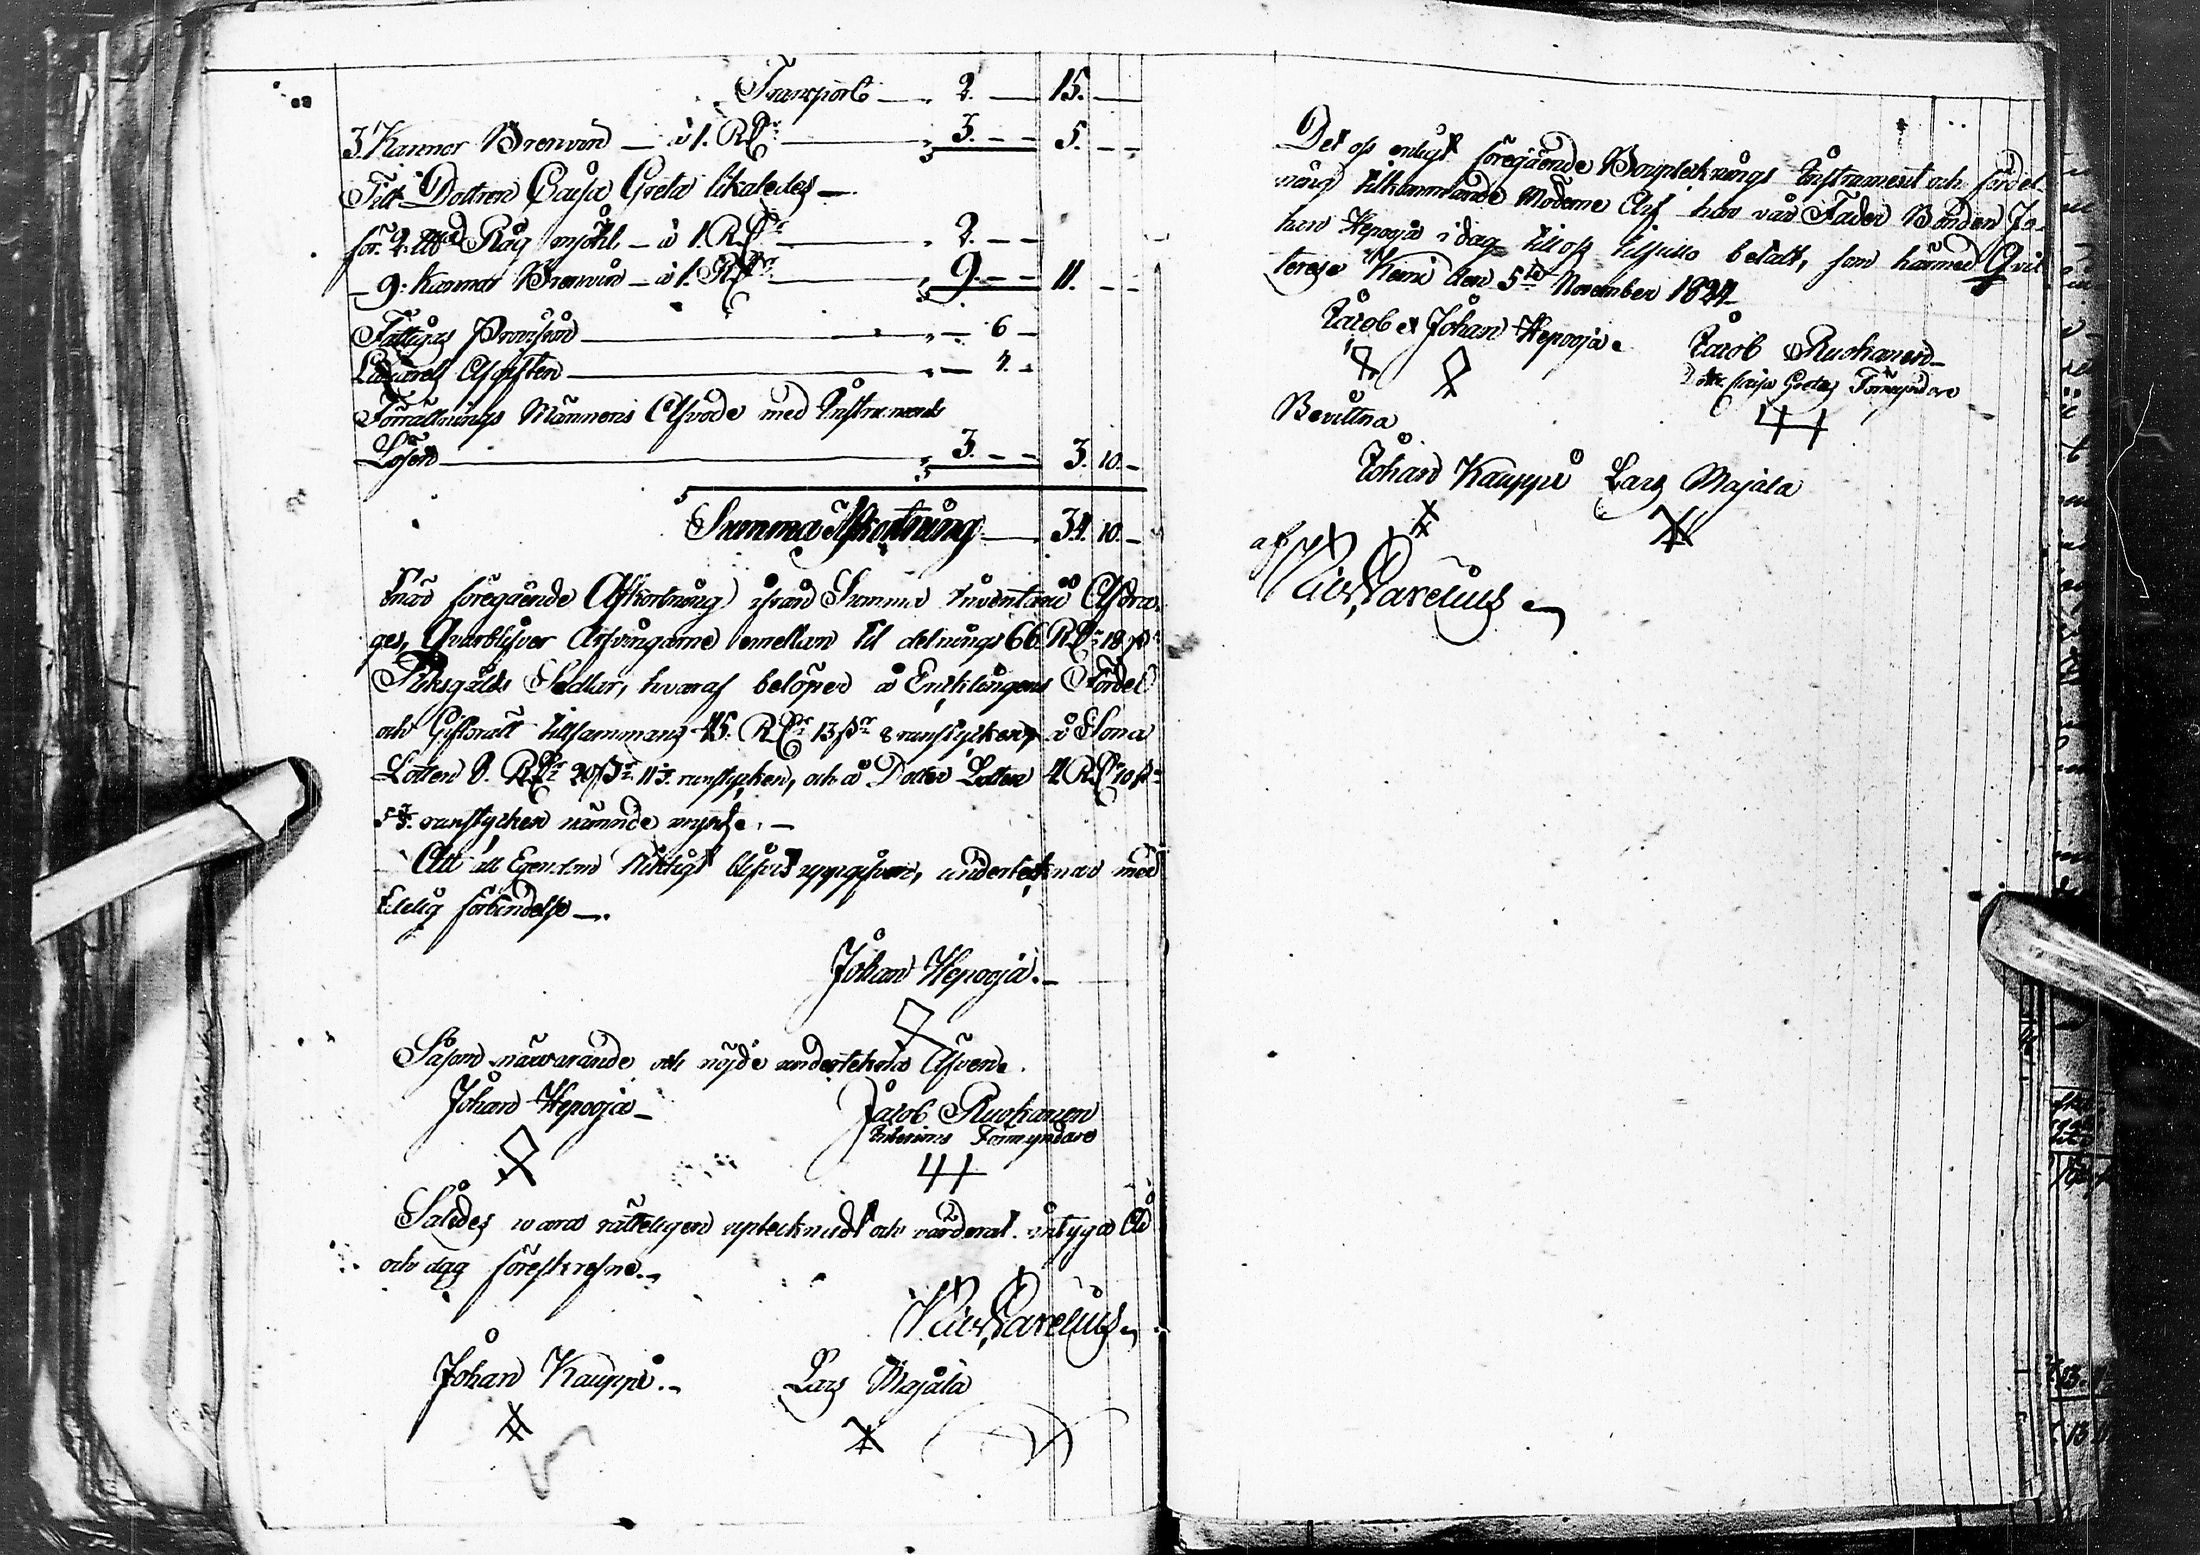 Transport 2. 15.
3. Kannor Brenvin à 1. Rd 3. 5.
Till Dottren Caisa Greta likaledes
för. 2. Råg mjöhl à 1. Rd 2.
9. Kannor Brenvin à 1. Rd 9. 11.
Fattigas Provision 6
Lazaretz Afgiften 4.
Förrättnings Männens Arfvode med Instruments
Lösen 3. 3. 10.
Summa Afkortning 34. 10.
När föregående Afkortning ifrån Summa Inventarii Afdra-
ges, Qvarblifver Arfvingarne emellan til delnings 66. Rd 18 s
Riksgälds Sedlar, hvaraf belöper å Enklingens Fördel
och Giftorätt tillsammans 45. Rd 13 s 8 runstycken, å Sona
Lotten 8. Rd 20 s runstycken, och å Dotter Lotten 4 Rd 10 s
runstycken nämnde mynt.
Att all Egendom Riktigt blifvit uppgifven, undertecknas med
Edelig förbindelse
Johan Hepooja.
Såsom närvarande och nöjde underteckna Äfven.
Johan Hepooja
Jacob Ruokanen
Interims Förmyndare
Således vara rätteligen uptecknadt och värderat. intyga År
och dag föreskrefne.
Johan Kauppi. Lars Majala
Det oss enligt föregående Boupteknings Instrument och fördel-
ning tilkommande Möderne Arf har vår Fader Bonden Jo-
han Hepooja i dag till oss tilfullo betalt, som härmed Qvit-
teres Kemi den 5te November 1824
Jacob & Johan Hepooja. Jacob Ruokanen
Dotter Caisa Gretas Förmyndare
Bevittna
Johan Kauppi Lars Majala
af